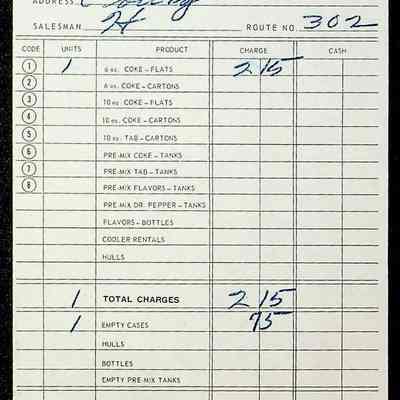 ADDRESS
SALESMAN H ROUTE NO. 302
CODE UNITS PRODUCT CHARGE CASH
1 1 6 oz. COKE - FLATS 2 15
2 6 oz. COKE - CARTONS
3 10 oz. COKE - FLATS
4 10 oz. COKE - CARTONS
5 10 oz. TAB - CARTONS
6 PRE-MIX COKE - TANKS
7 PRE-MIX TAB - TANKS
8 PRE-MIX FLAVORS - TANKS
PRE-MIX DR. PEPPER - TANKS
FLAVORS - BOTTLES
COOLER RENTALS
HULLS
1 TOTAL CHARGES 2 15
1 EMPTY CASES 75
HULLS
BOTTLES
EMPTY PRE-MIX TANKS